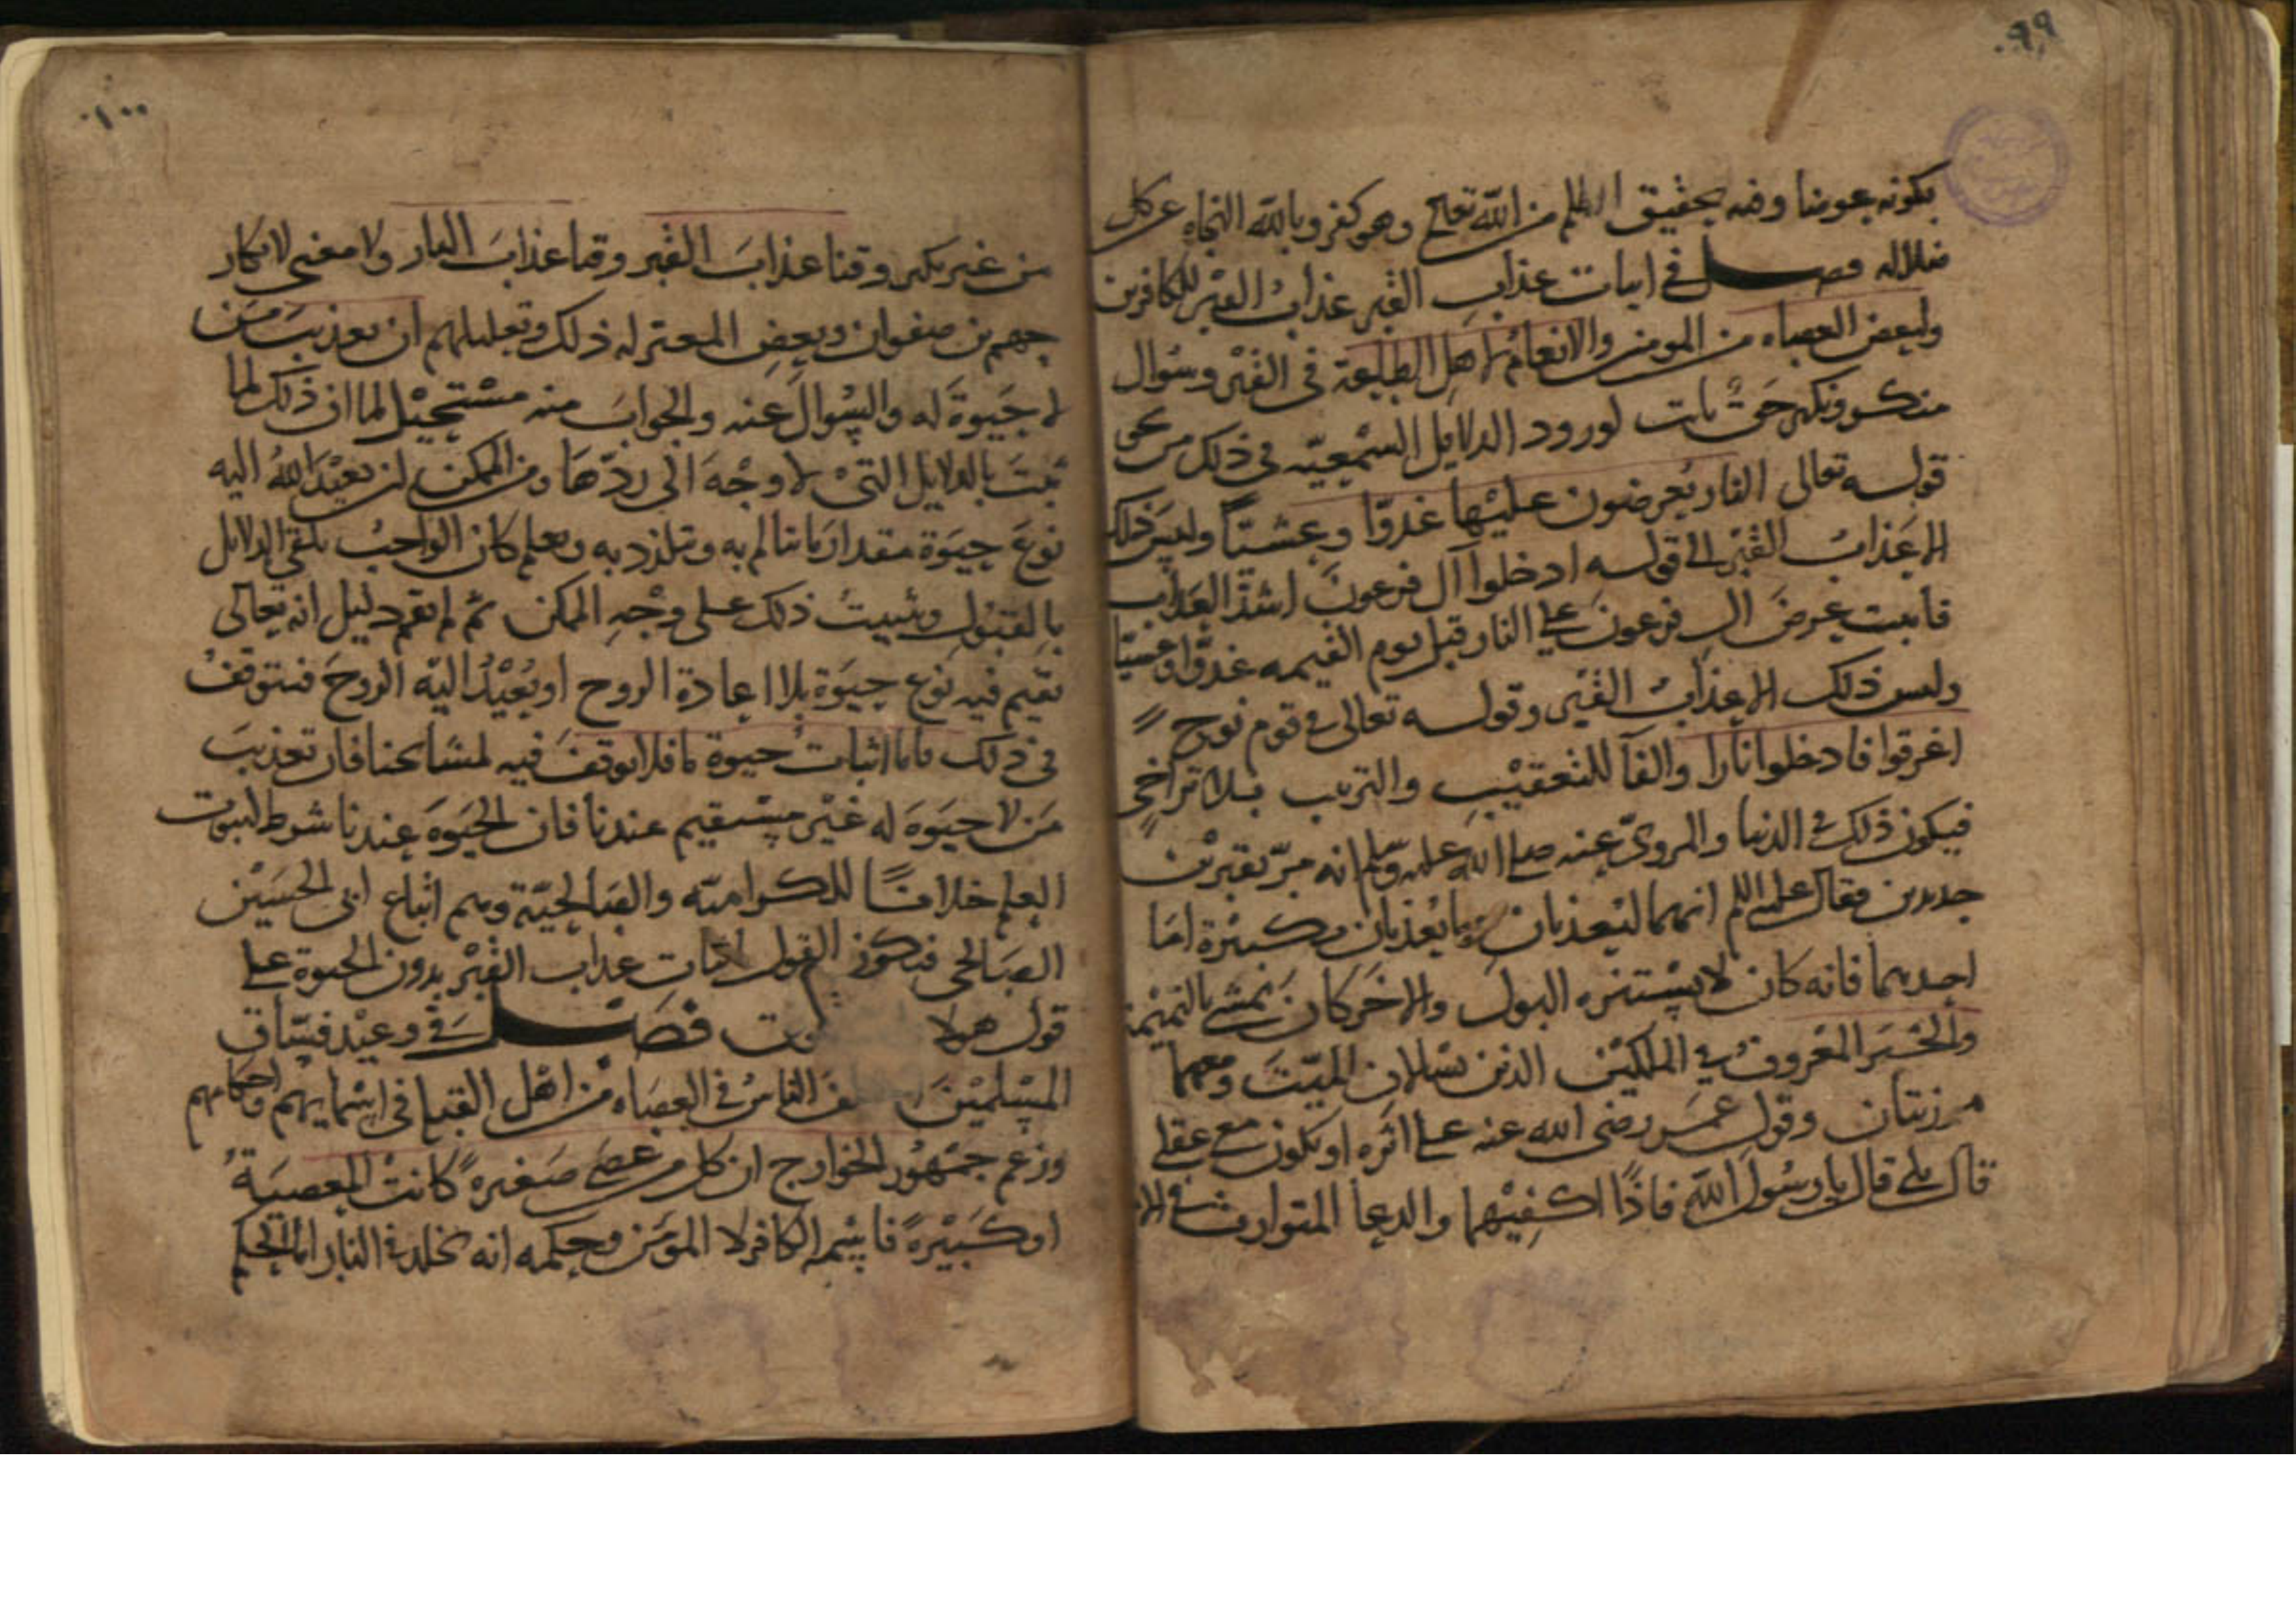 ٩٩
بكونه عوضا وفيه تحقيق الظلم من الله تعالى وهو كفر وبالله النجاه عن كل
ضلاله فصل في اثبات عذاب القبر عذاب القبر للكافرين
ولبعض العصاه من المومنين والانعام لاهل الطاعة في القبر وسؤال
منكر ونكير حق ثابت لورود الدلايل السمعيّه في ذلك من نحو
قوله تعالى النار يُعرضون عليْها غدوّا وعشيّا وليسَ ذلك
الا عَذابُ القبْر الى قوله ادخلوا آل فرعون اشدّ العذاب
فاثبت عرضَ ال فرعون على النار قبل يوم القيمه غدوّا وعشيّا
وليس ذلك الا عذابُ القبْر وقوله تعالى في قوم نوح
اغرقوا فادخلوا نارا والفآ للتعقيْب والترتيب بلا تراخٍ
فيكون ذلك في الدنيا والمرويّ عنه صلى الله عليه وسلم انه مرّ بقبريْن
جديدين فقال عليه السلم انهما ليُعذبان وما يُعذبان في كبيْرة امّا
احديهما فانه كان لا يسْتنزه البول والاخَر كان يَمشي بالنميْمة
والخبَر المعْروفُ في الملكيْن الذين يسالان الميّتَ ومعهما
مرزبتان وقول عمَر رضى الله عنه على اثره او يكون معي عقلي
قال بلى قال يا رسُول اللّه فاذًا اكفِيْهما والدعا المتوارث في الا
١٠٠
من غير نكير وقنا عذابَ القبْر وقنا عذابَ النار ولا معنى لانكار
جهم بن صفوان وبعض المعتزله ذلك وتعليلهم ان تعذيبَ مَن
لا حَيوةَ له والسُوالَ عنه والجوابَ منه مسْتحيْل لما ان ذلك لما
ثبتَ بالدلايل التيْ لا وجْهَ الى ردّها ومن الممكن ان يعيْدَ اللهُ اليه
نوعَ حيَوة مقدار ما يتالم به ويتلذذ به ويعلم كان الواجبُ تلقي الدلايل
بالقبُول ويثبيتُ ذلك على وجْهِ الممكن ثم لم يقم دليل انه تعالى
يقيم فيه نوع حيَوة بلا اعادة الروح او يُعيْدُ اليْه الروحَ فنتوقفُ
في ذلك فاما اثبات حيوة ما فلا توقفَ فيه لمشايخنا فان تعذيبَ
مَن لا حيَوةَ له غيْر مسْتقيم عندنا فان الحيَوةَ عندنا شرط لثبوت
العلم خلافًا للكراميّه والصَالحيّة وهم اتباع ابى الحسَيْن
الصَالحى فيكون القول باثبات عذاب القبْر بدون الحيوة على
قول هولا فصْل في وعيْد فسّاق
المسْلميْنَ الناسُ في العصَاه من اهْل القبلة في اسْمايهم واحكامهم
وزعم جمْهُور الخوارج ان كل من عصَى صَغيرةً كانتْ المعصيَة
او كبَيْرةً فاسْمه الكافر لا المؤمن وحكمه انه يخلد في النار اما الحكم